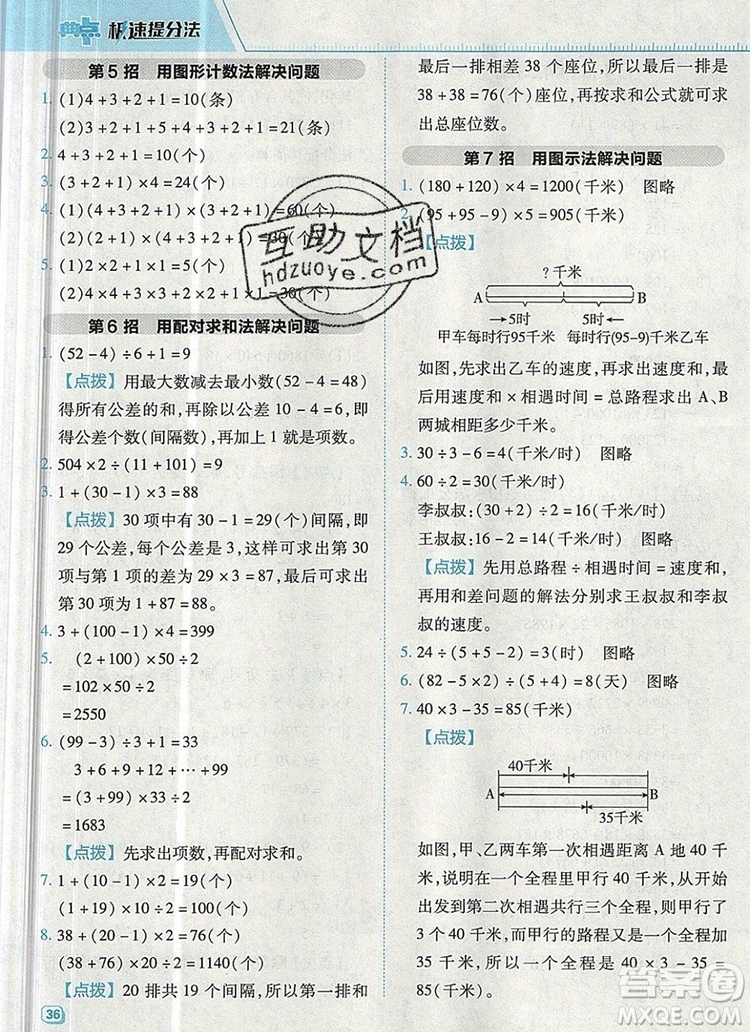 典点 极速提分法
第5招 用图形计数法解决问题
1. (1)4+3+2+1=10(条)
(2)3+2+1+5+4+3+2+1=21(条)
2. 4+3+2+1=10(个)
3. (3+2+1)×4=24(个)
4. (1)(4+3+2+1)×(3+2+1)=60(个)
(2)(2+1)×(4+3+2+1)=30(个)
5. (1)2×2+1×1=5(个)
(2)4×4+3×3+2×2+1×1=30(个)
第6招 用配对求和法解决问题
1. (52-4)÷6+1=9
【点拨】用最大数减去最小数(52-4=48)
得所有公差的和,再除以公差10-4=6,即
得公差个数(间隔数),再加上1就是项数。
2. 504×2÷(11+101)=9
3. 1+(30-1)×3=88
【点拨】30项中有30-1=29(个)间隔,即
29个公差,每个公差是3,这样可求出第30
项与第1项的差为29×3=87,最后可求出
第30项为1+87=88。
4. 3+(100-1)×4=399
5. (2+100)×50÷2
=102×50÷2
=2550
6. (99-3)÷3+1=33
3+6+9+12+…+99
=(3+99)×33÷2
=1683
【点拨】先求出项数,再配对求和。
7. 1+(10-1)×2=19(个)
(1+19)×10÷2=100(个)
8. 38+(20-1)×2=76(个)
(38+76)×20÷2=1140(个)
【点拨】20排共19个间隔,所以第一排和
36
最后一排相差38个座位,所以最后一排是
38+38=76(个)座位,再按求和公式就可求
出总座位数。
第7招 用图示法解决问题
1. (180+120)×4=1200(千米) 图略
2. (95+95-9)×5=905(千米)
【点拨】
?千米
A B
5时 5时
甲车每时行95千米 每时行(95-9)千米乙车
如图,先求出乙车的速度,再求出速度和,最
后用速度和×相遇时间=总路程求出A、B
两城相距多少千米。
3. 30÷3-6=4(千米/时) 图略
4. 60÷2=30(千米/时)
李叔叔:(30+2)÷2=16(千米/时)
王叔叔:16-2=14(千米/时) 图略
【点拨】先用总路程÷相遇时间=速度和,
再用和差问题的解法分别求王叔叔和李叔
叔的速度。
5. 24÷(5+5-2)=3(时) 图略
6. (82-5×2)÷(5+4)=8(天) 图略
7. 40×3-35=85(千米)
【点拨】
40千米
A B
35千米
如图,甲、乙两车第一次相遇距离A地40千
米,说明行一个全程甲行40千米,从开始出
发到第二次相遇共行三个全程,则甲共行了
3个40千米,而甲行的路程又是一个全程多
35千米,所以一个全程是40×3-35=
85(千米)。
互助文档
hdzuoye.com
答案圈
MXQE.COM